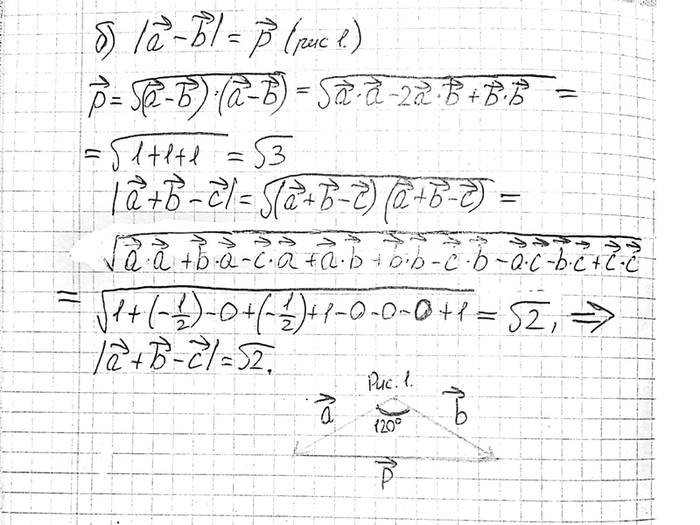 б) |a⃗ - b⃗| = p⃗ (рис 1.)
p⃗ = √(a⃗ - b⃗)·(a⃗ - b⃗) = √a⃗·a⃗ - 2a⃗·b⃗ + b⃗·b⃗ =
= √1+1+1 = √3
|a⃗ + b⃗ - c⃗| = √(a⃗ + b⃗ - c⃗)(a⃗ + b⃗ - c⃗) =
√a⃗·a⃗ + b⃗·a⃗ - c⃗·a⃗ + a⃗·b⃗ + b⃗·b⃗ - c⃗·b⃗ - a⃗·c⃗ - b⃗·c⃗ + c⃗·c⃗
= √1+(-1/2)-0+(-1/2)+1-0-0-0+1 = √2, ⇒
|a⃗ + b⃗ - c⃗| = √2.
Рис. 1.
a⃗ 120° b⃗
p⃗